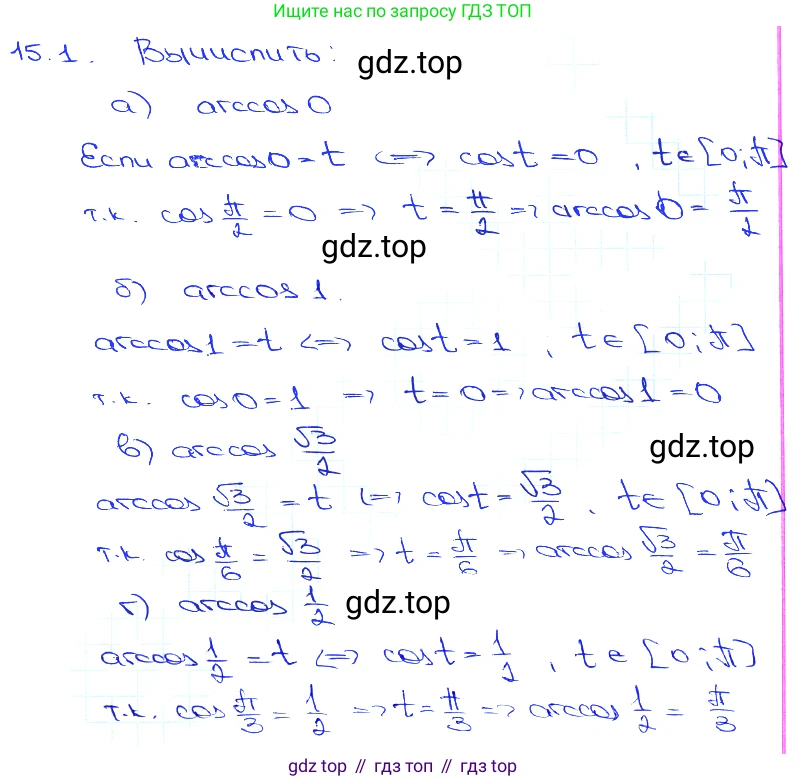 Ищите нас по запросу ГДЗ ТОП
15.1. Вычислить:
gdz.top
а) arccos 0
Если arccos 0 = t <=> cos t = 0, t ∈ [0; π]
т.к. cos π/2 = 0 => t = π/2 => arccos 0 = π/2
gdz.top
б) arccos 1.
arccos 1 = t <=> cos t = 1, t ∈ [0; π]
т.к. cos 0 = 1 => t = 0 => arccos 1 = 0
в) arccos √3/2
gdz.top
arccos √3/2 = t <=> cos t = √3/2, t ∈ [0; π]
т.к. cos π/6 = √3/2 => t = π/6 => arccos √3/2 = π/6
г) arccos 1/2
gdz.top
arccos 1/2 = t <=> cos t = 1/2, t ∈ [0; π]
т.к. cos π/3 = 1/2 => t = π/3 => arccos 1/2 = π/3
gdz top // гдз топ // gdz.top